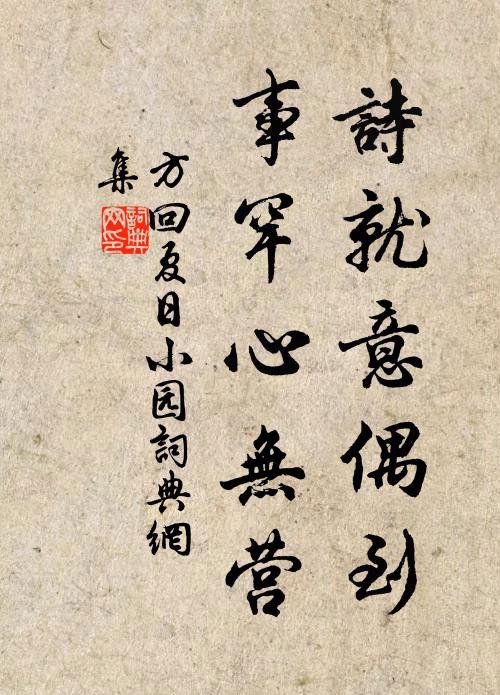 詩就意偶到
事罕心無营
方回夏日小园詞典網
集
詞典網印